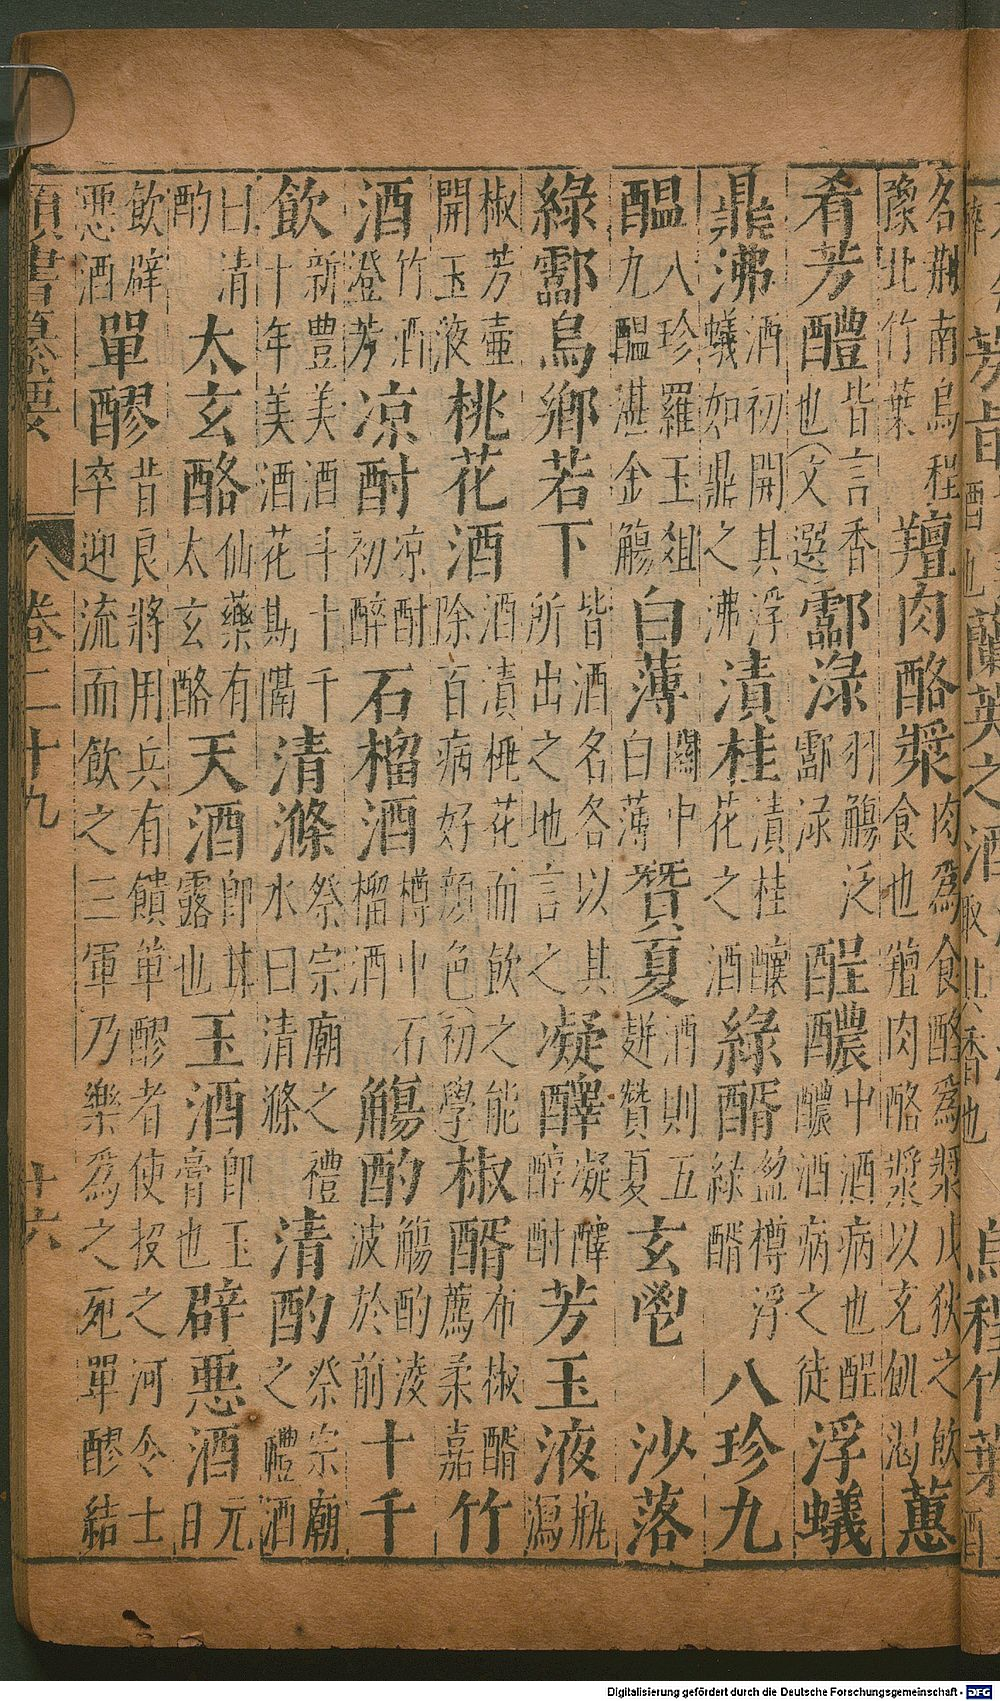 旨酒也蘭英之酒取其香也 烏程竹葉酒
名荊南烏程豫北竹葉羶肉酪漿肉爲食酪爲漿戎狄之飲食也羶肉酪漿以充飢渴蕙
肴芳醴皆言香也(文選)酃淥羽觴泛酃淥酲醲中酒病也酲醲酒病之徒浮蟻
鼎沸酒初開其浮蟻如鼎之沸漬桂漬桂釀花之酒綠醑盈樽浮綠醑八珍九
醖八珍羅玉俎九醖湛金觴白薄關中白薄賛夏酒則五賛夏玄鬯 沙落
綠酃烏鄉若下皆酒名各以其所出之地言之凝醳凝醳醇酎芳玉液瓶瀉
椒芳壺開玉液桃花酒酒漬桃花而飲之能除百病好顔色(初學)椒醑布椒醑薦柔嘉竹
酒竹酒澄芳凉酎凉酎初醉石榴酒樽中石榴酒觴酌觴酌淩波於前十千
飲新豊美酒斗十千十年美酒花斯隔清滌祭宗廟之禮水曰清滌清酌祭宗廟之醴酒
曰清酌太玄酪仙藥有太玄酪天酒卽甘露也玉酒卽玉膏也辟悪酒元日
飲辟悪酒單醪昔良將用兵有饋單醪者使投之河令士卒迎流而飲之三軍乃樂爲之死單醪結
類書纂要 卷二十九 十六
Digitalisierung gefördert durch die Deutsche Forschungsgemeinschaft - DFG